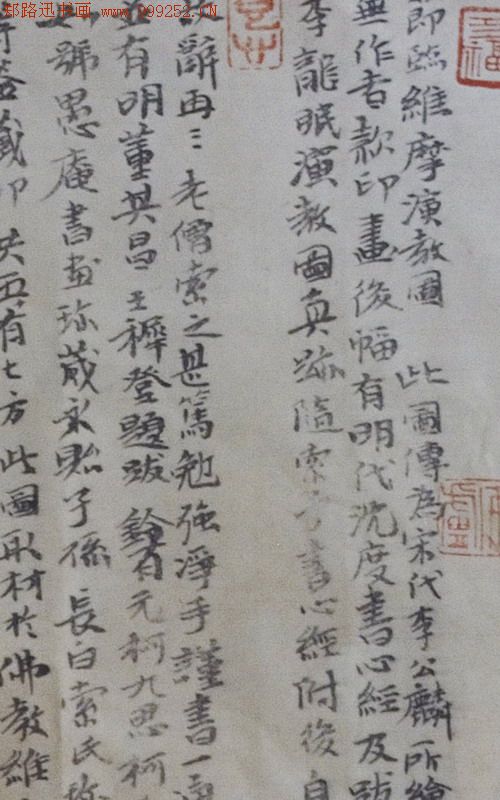 郑路迅书画 www.999252.CN
即臨維摩演教圖 此圖傳為宋代李公麟所繪
無作者款印畫後幅有明代沈度書心經及跋
李龍眠演教圖真跡隨索予書心經附後自
辭再三老僧索之甚篤勉強淨手謹書一
有明董其昌王穉登題跋 鈐有元柯九思柯
號愚庵書畫珍藏永貽子孫 長白索氏珍
藏印 共五有七方此圖取材於佛教維